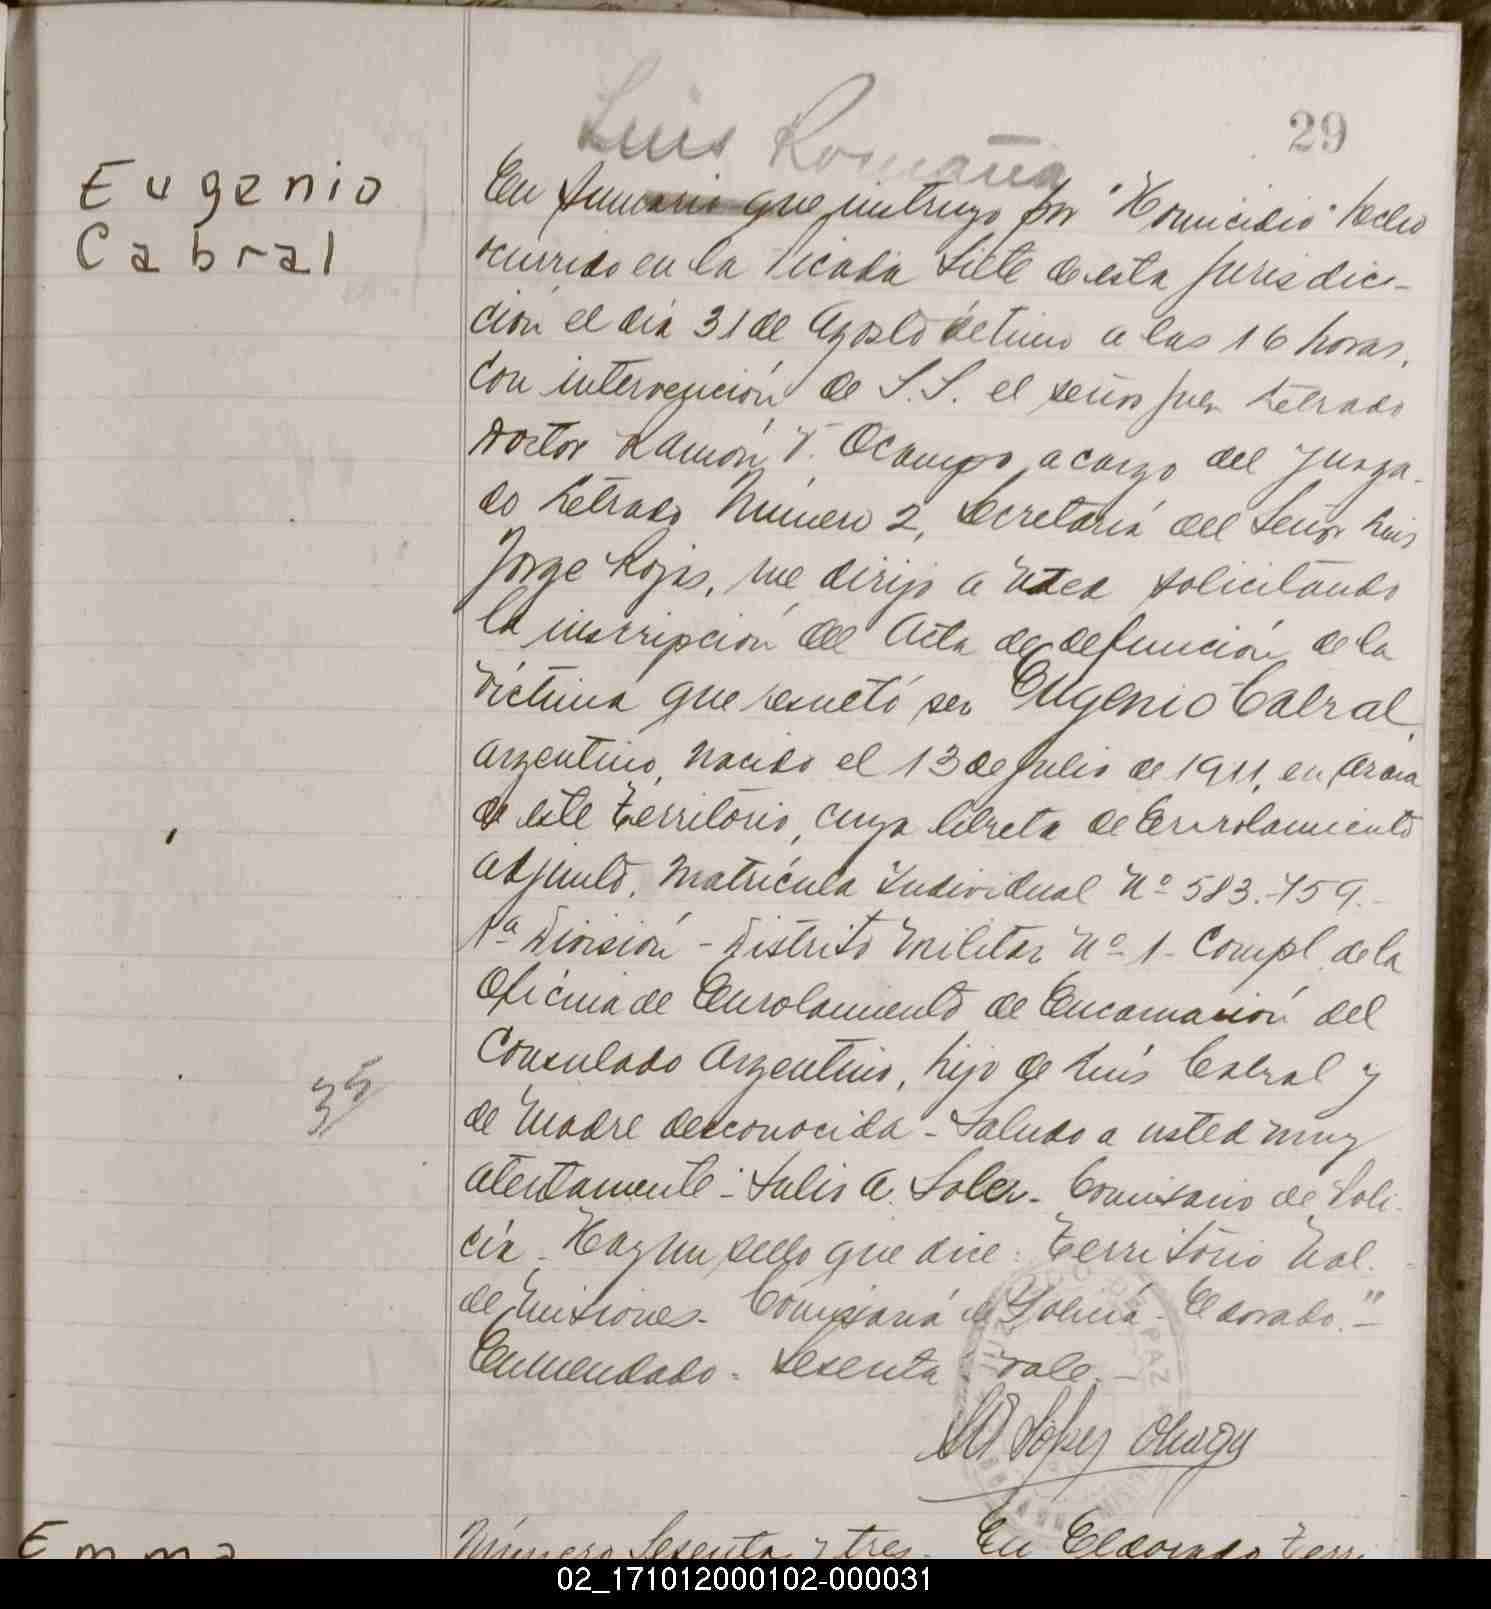 29
Luis Romaña
Eugenio
Cabral
En sumario que instruyo por "Homicidio" hecho
ocurrido en la Picada Siete de esta jurisdic-
ción el día 31 de Agosto último a las 16 horas,
con intervención de S.S. el señor Juez Letrado
Doctor Ramón V. Ocampo, a cargo del Juzga-
do Letrado Número 2, Secretaría del Señor Luis
Jorge Rojas, me dirijo a Usted solicitando
la inscripción del Acta de defunción de la
víctima que resultó ser Eugenio Cabral,
argentino, nacido el 13 de Julio de 1911, en
de este Territorio, cuya libreta de Enrolamiento
adjunto, Matrícula Individual Nº 583.759.-
1ª División - Distrito Militar Nº 1 - Compl. de la
Oficina de Enrolamiento de Encarnación del
Consulado Argentino, hijo de Luis Cabral y
de Madre desconocida - Saludo a usted muy
atentamente - Julio A. Soler - Comisario de Poli-
cía - Hay un sello que dice: Territorio Nal.
de Misiones - Comisaría de Policía - Eldorado." -
Enmendado - sesenta vale. -
35
López
PAZ
Emma
Número Sesenta y tres - En Eldorado Terri
02_171012000102-000031